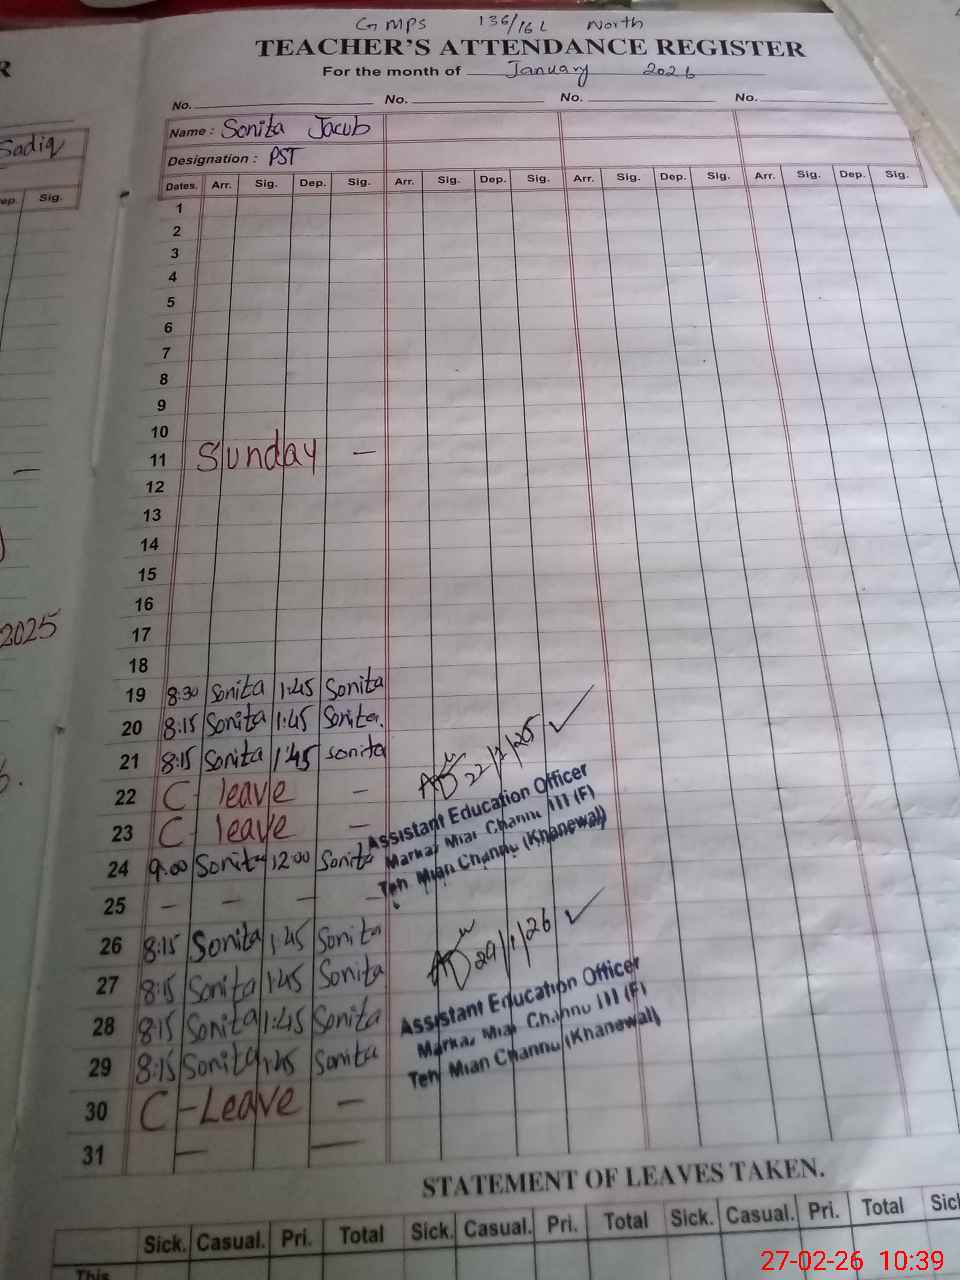 GMPS 136/16 L North
TEACHER'S ATTENDANCE REGISTER
For the month of January 2026
No. No. No. No.
Name : Sonita Jacub
Designation : PST
Dates. Arr. Sig. Dep. Sig. Arr. Sig. Dep. Sig. Arr. Sig. Dep. Sig. Arr. Sig. Dep. Sig.
1
2
3
4
5
6
7
8
9
10
11 Sunday —
12
13
14
15
16
17
18
19 8:30 Sonita 1:45 Sonita
20 8:15 Sonita 1:45 Sonita.
21 8:15 Sonita 1:45 sonita
22 C- leave —
23 C- leave —
24 9:00 Sonita 12:00 Sonita
25 — — — —
26 8:15 Sonita 1:45 Sonita
27 8:15 Sonita 1:45 Sonita
28 8:15 Sonita 1:45 Sonita
29 8:15 Sonita 1:45 Sonita
30 C - Leave —
31 — —
22/1/25
Assistant Education Officer
Markaz Mian Channu III (F)
Teh Mian Channu (Khanewal)
29/1/26
Assistant Education Officer
Markaz Mian Channu III (F)
Teh Mian Channu (Khanewal)
STATEMENT OF LEAVES TAKEN.
Sick. Casual. Pri. Total Sick. Casual. Pri. Total Sick. Casual. Pri. Total
This
R
Sadiq
Sig.
2025
27-02-26 10:39